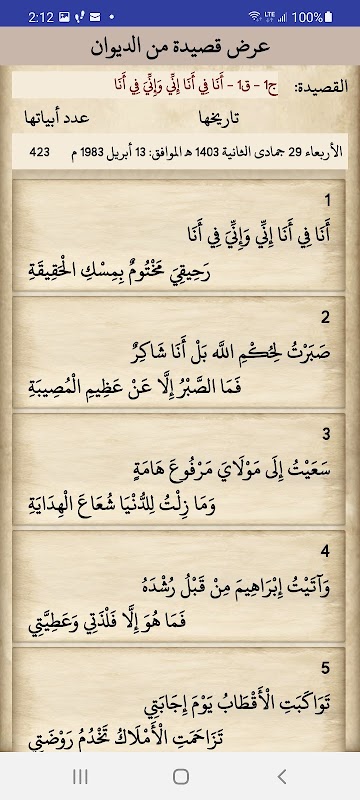 2:12 LTE 100%
عرض قصيدة من الديوان
القصيدة: ج1 - ق1 - أَنَا فِي أَنَا إِنِّي وَإِنِّيَ فِي أَنَا
تاريخها عدد أبياتها
الأربعاء 29 جمادى الثانية 1403 هـ الموافق: 13 أبريل 1983 م 423
1
أَنَا فِي أَنَا إِنِّي وَإِنِّيَ فِي أَنَا
رَحِيقِيَ مَخْتُومٌ بِمِسْكِ الْحَقِيقَةِ
2
صَبَرْتُ لِحُكْمِ اللَّه بَلْ أَنَا شَاكِرٌ
فَمَا الصَّبْرُ إِلَّا عَنْ عَظِيمِ الْمُصِيبَةِ
3
سَعَيْتُ إِلَى مَوْلَايَ مَرْفُوعَ هَامَةٍ
وَمَا زِلْتُ لِلدُّنْيَا شُعَاعَ الْهِدَايَةِ
4
وَآتَيْتُ إِبْرَاهِيمَ مِنْ قَبْلُ رُشْدَهُ
فَمَا هُوَ إِلَّا فَلْذَتِي وَعَطِيَّتِي
5
تَوَاكَبَتِ الْأَقْطَابُ يَوْمَ إِجَابَتِي
تَزَاحَمَتِ الْأَمْلَاكُ تَخْدُمُ رَوْضَتِي